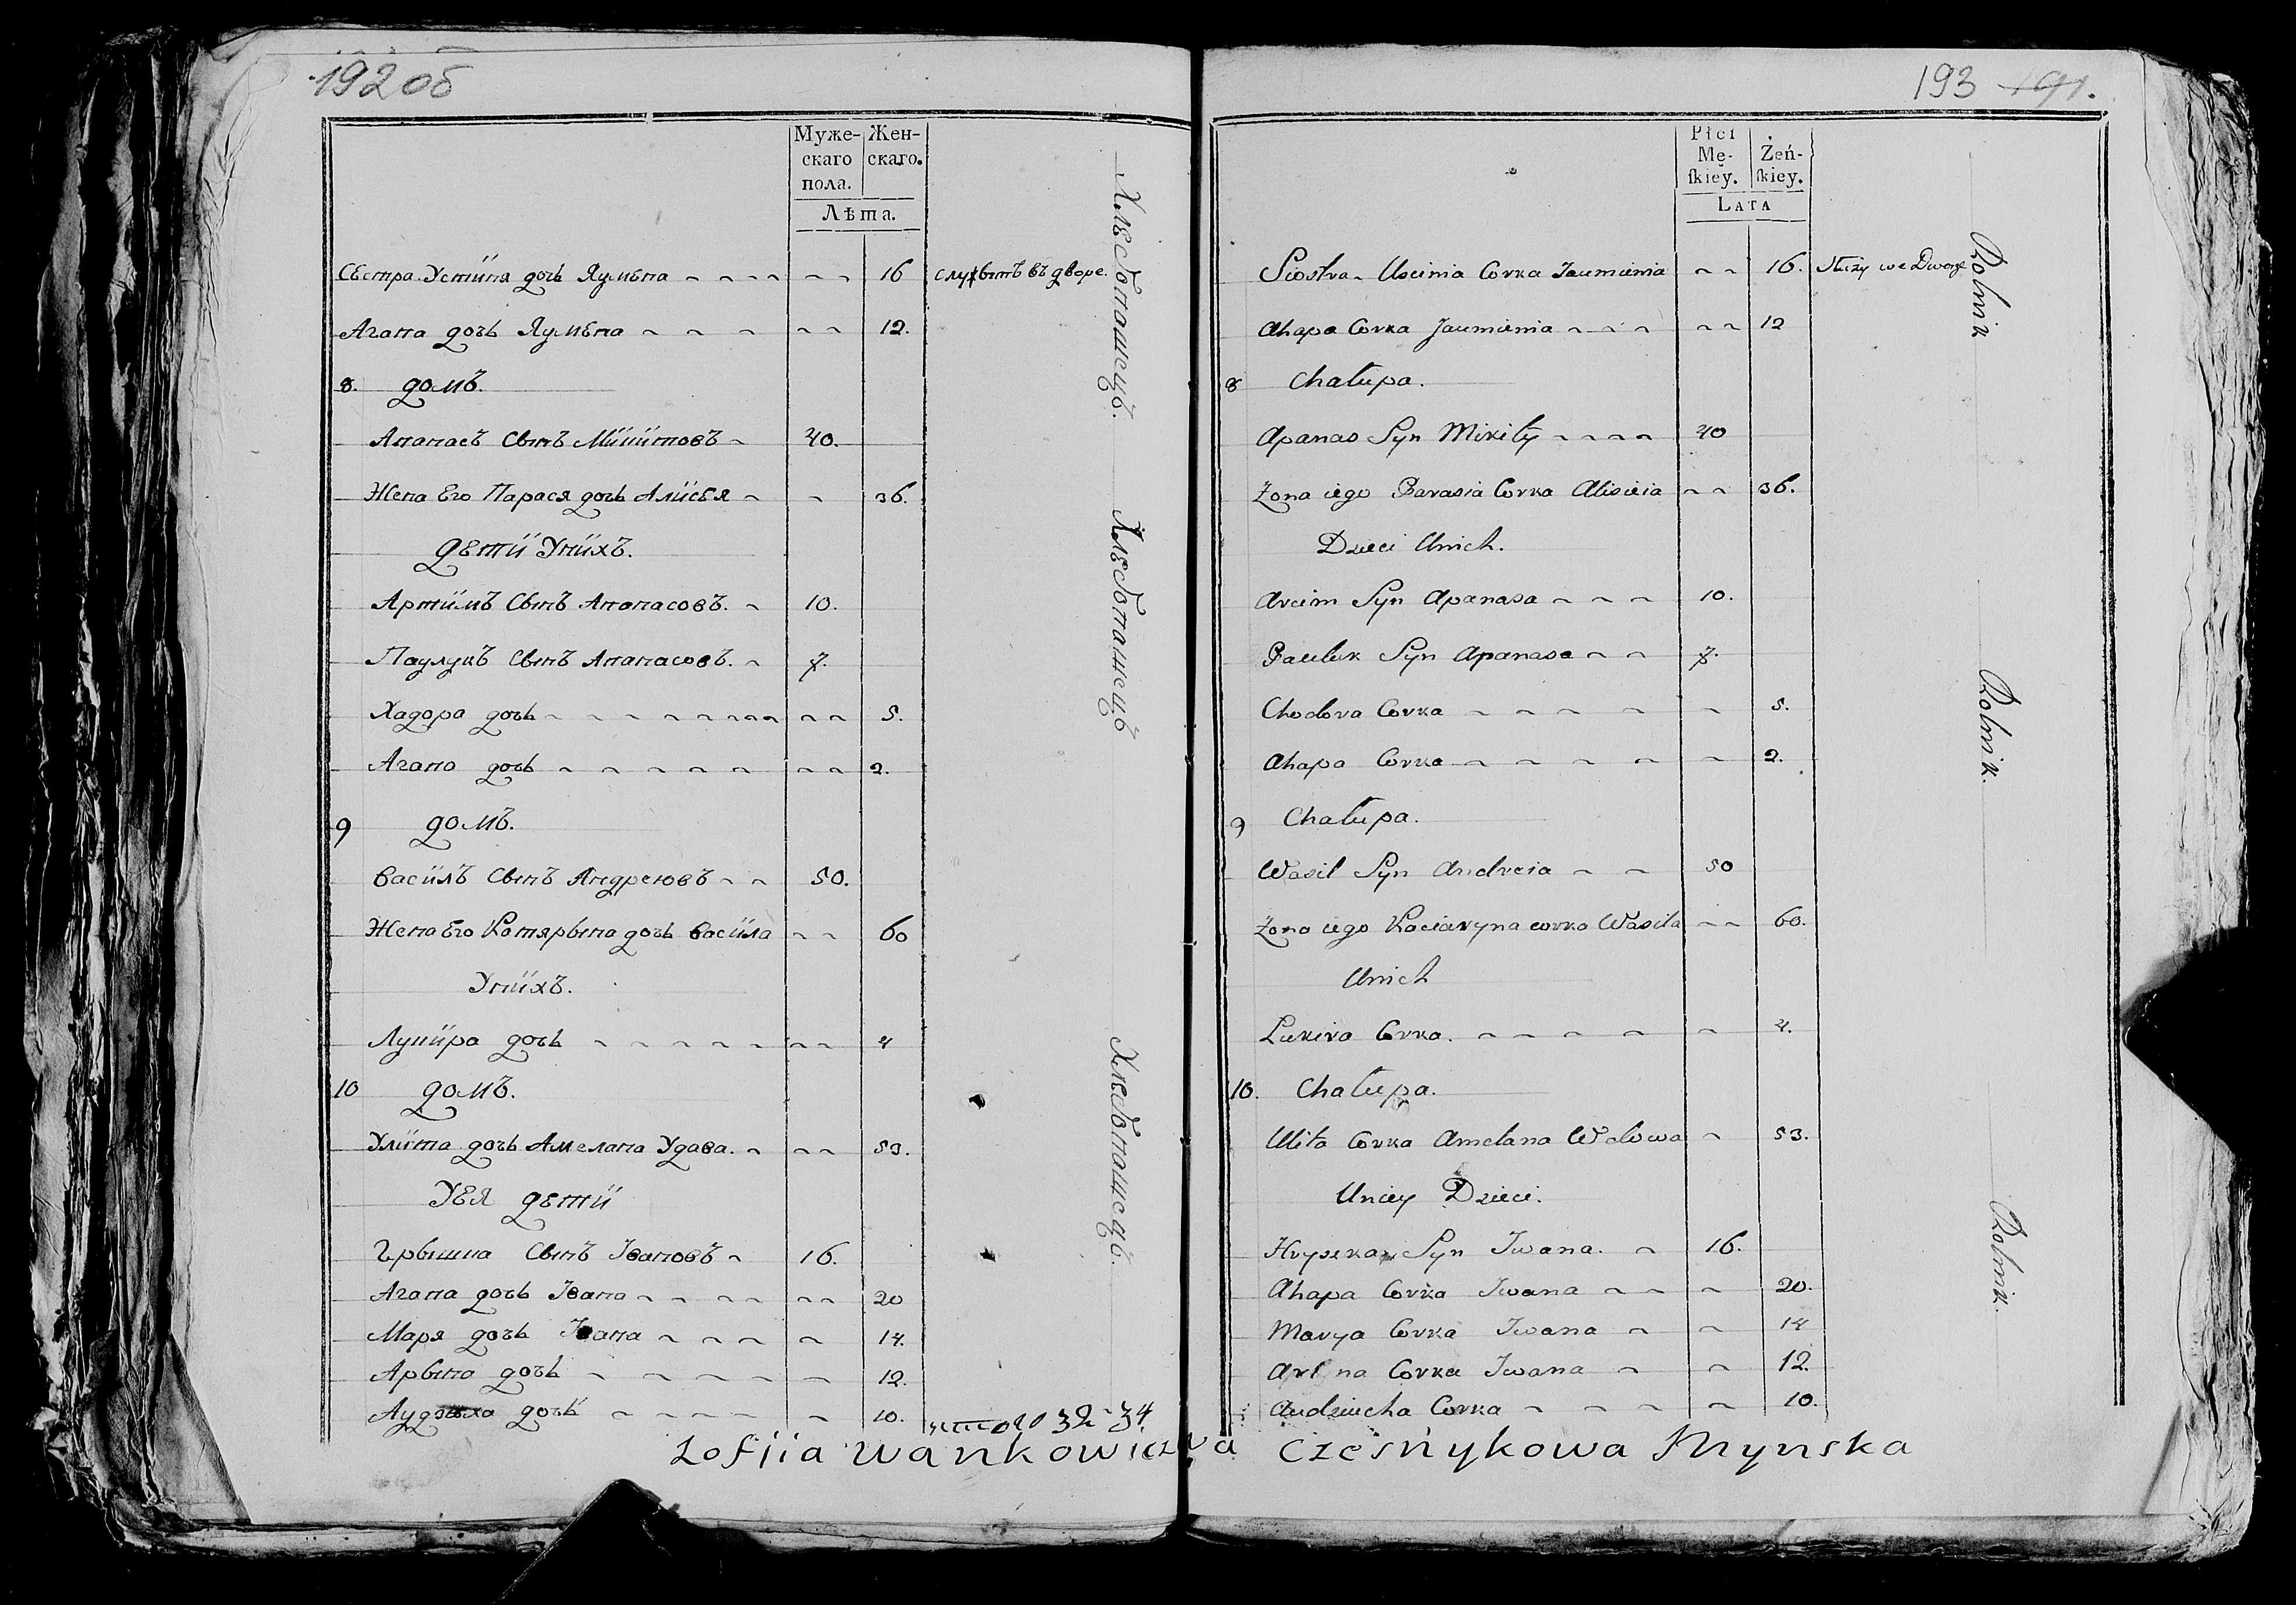 192 об
Муже-
скаго
пола.
Жен-
скаго.
Лѣта.
Сѣстра Устиня дочь Яумѣна 16 служытъ въ дворе.
Агапа дочь Яумѣна 12.
8. домъ.
Апанасъ Сынъ Микитовъ 40.
Жена Его Парася дочь Алисѣя 36.
дѣти Унихъ.
Артимъ Сынъ Апанасовъ. 10.
Паулукъ Сынъ Апанасовъ. 7.
Хадора дочь 5.
Агапа дочь 2.
9 домъ.
Василъ Сынъ Андреювъ 50.
Жена Его Катярына дочь Васила 60
Унихъ.
Лукира дочь 4
10 домъ.
Улита дочь Амелана Удава. 53.
Уея дѣти
Грышка Сынъ Івановъ 16.
Агапа дочь Івана 20
Маря дочь Івана 14.
Арына дочь 12.
дочь 10.
Хлѣбопашецъ.
Хлѣбопашецъ
Хлебопашецъ.
32 34
193 191.
Płci
Mę-
ſkiey.
Żeń-
ſkiey.
LATA
Siostra Uscinia Corka Jaumienia 16. Służy we Dworze
Ahapa Corka Jaumienia 12
8 Chałupa.
Apanas Syn Mikity 40
Żona iego Parasia Corka Alisieia 36.
Dzieci Unich.
Arcim Syn Apanasa 10.
Pauluk Syn Apanasa 7.
Chodora Corka 5.
Ahapa Corka 2.
9 Chałupa.
Wasil Syn Andreia 50
Żona iego Kaciaryna corka Wasila 60.
Unich
Lukira Corka. 4.
10. Chałupa.
Ulita Corka Amelana Wdowa 53.
Uniey Dzieci.
Hryszka Syn Iwana. 16.
Ahapa Corka Iwana 20.
Marya Corka Iwana 14
Aryna Corka Iwana 12.
Audziucha Corka 10.
Rolnik
Rolnik.
Rolnik.
Zofiia Wankowiczowa Czesnykowa Mynska